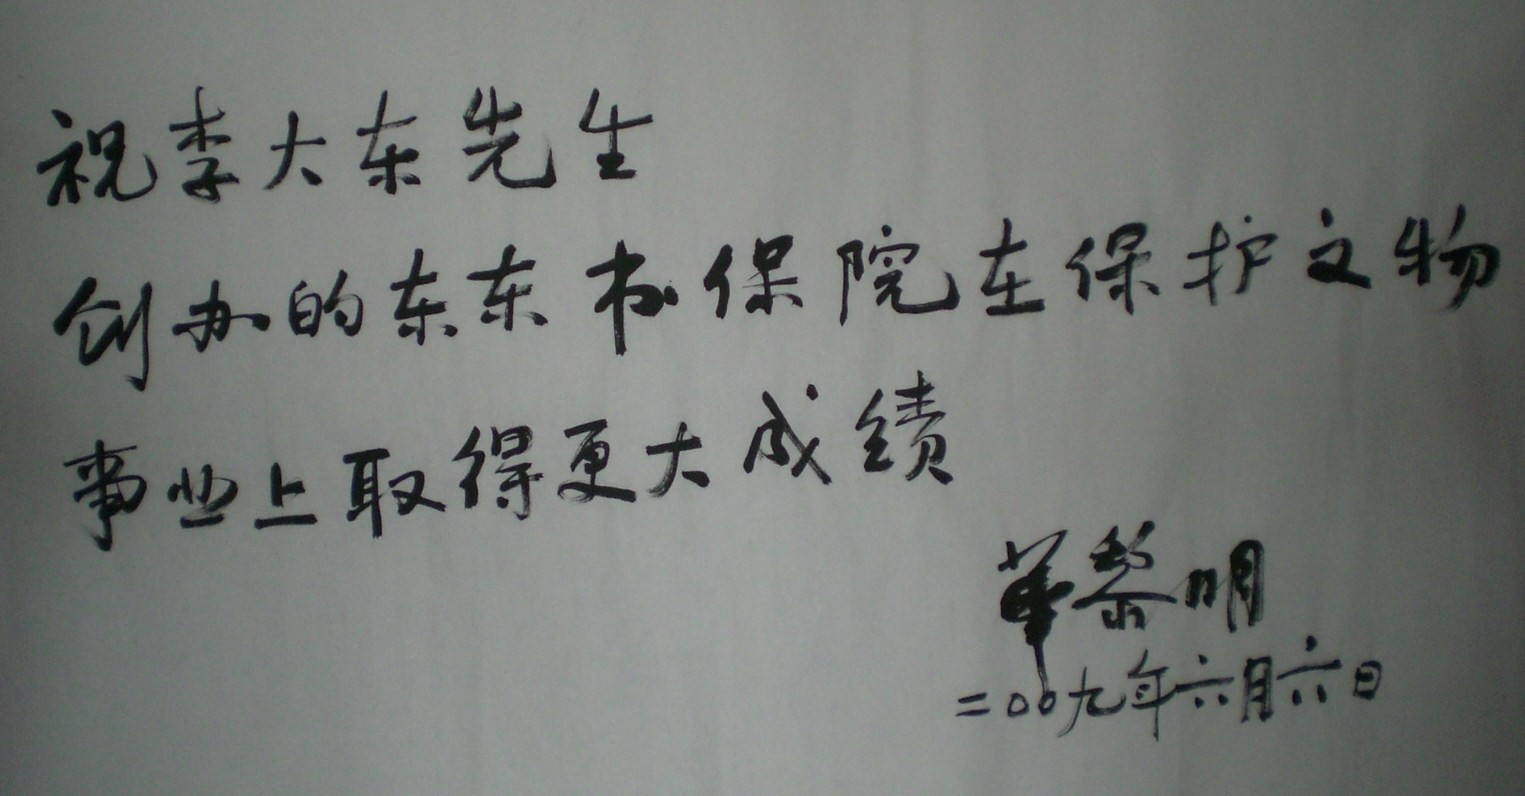 祝李大东先生
创办的东东书保院在保护文物
事业上取得更大成绩
华黎明
二〇〇九年六月六日